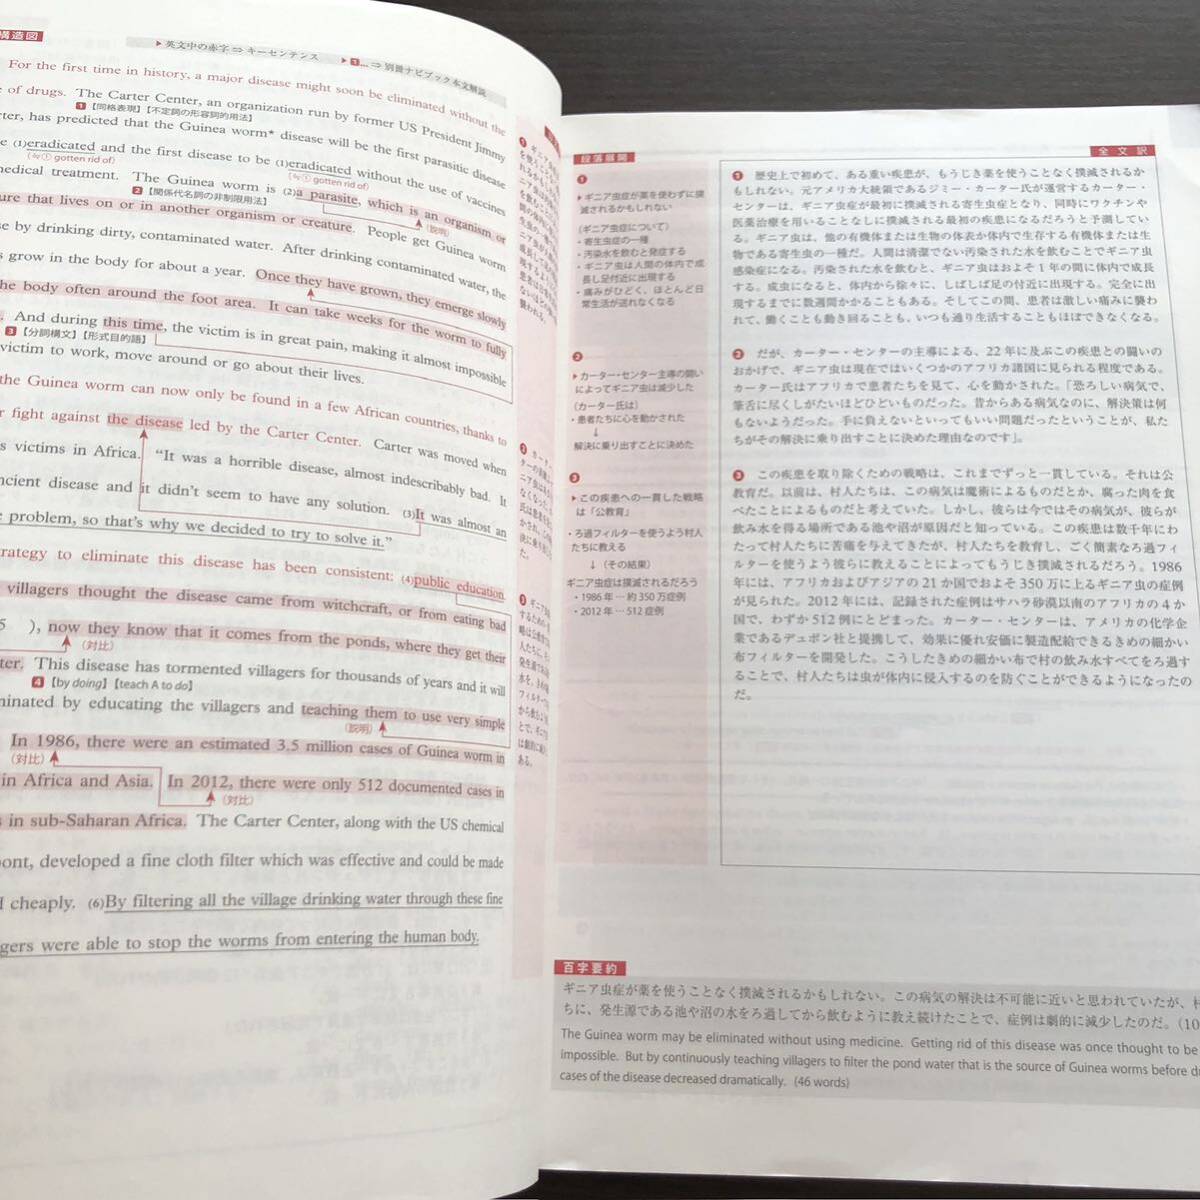 構造図
▶英文中の赤字⇒キーセンテンス ▶1…⇒別冊ナビブック本文解説
For the first time in history, a major disease might soon be eliminated without the
e of drugs. The Carter Center, an organization run by former US President Jimmy
1【同格表現】【不定詞の形容詞的用法】
rter, has predicted that the Guinea worm* disease will be the first parasitic disease
e (1)eradicated and the first disease to be (1)eradicated without the use of vaccines
(≒① gotten rid of) (≒① gotten rid of)
medical treatment. The Guinea worm is (2)a parasite, which is an organism or
2【関係代名詞の非制限用法】 (説明)
ure that lives on or in another organism or creature. People get Guinea worm
se by drinking dirty, contaminated water. After drinking contaminated water, the
s grow in the body for about a year. Once they have grown, they emerge slowly
the body often around the foot area. It can take weeks for the worm to fully
. And during this time, the victim is in great pain, making it almost impossible
3【分詞構文】【形式目的語】
victim to work, move around or go about their lives.
the Guinea worm can now only be found in a few African countries, thanks to
r fight against the disease led by the Carter Center. Carter was moved when
s victims in Africa. “It was a horrible disease, almost indescribably bad. It
ncient disease and it didn't seem to have any solution. (3)It was almost an
e problem, so that's why we decided to try to solve it.”
rategy to eliminate this disease has been consistent: (4)public education.
villagers thought the disease came from witchcraft, or from eating bad
5 ), now they know that it comes from the ponds, where they get their
(対比)
ter. This disease has tormented villagers for thousands of years and it will
4【by doing】【teach A to do】
minated by educating the villagers and teaching them to use very simple
(説明)
In 1986, there were an estimated 3.5 million cases of Guinea worm in
(対比)
in Africa and Asia. In 2012, there were only 512 documented cases in
(対比)
s in sub-Saharan Africa. The Carter Center, along with the US chemical
pont, developed a fine cloth filter which was effective and could be made
d cheaply. (6)By filtering all the village drinking water through these fine
gers were able to stop the worms from entering the human body.
段落展開
1
▶ギニア虫症が薬を使わずに撲
滅されるかもしれない
(ギニア虫症について)
・寄生虫症の一種
・汚染水を飲むと発症する
・ギニア虫は人間の体内で成
長し足付近に出現する
・痛みがひどく、ほとんど日
常生活が送れなくなる
2
▶カーター・センター主導の闘い
によってギニア虫は減少した
(カーター氏は)
・患者たちに心を動かされた
↓
解決に乗り出すことに決めた
3
▶この疾患への一貫した戦略
は「公教育」
・ろ過フィルターを使うよう村人
たちに教える
↓(その結果)
ギニア虫症は撲滅されるだろう
・1986 年…約 350 万症例
・2012 年…512 症例
全文訳
1 歴史上で初めて、ある重い疾患が、もうじき薬を使うことなく撲滅されるか
もしれない。元アメリカ大統領であるジミー・カーター氏が運営するカーター・
センターは、ギニア虫症が最初に撲滅される寄生虫症となり、同時にワクチンや
医薬治療を用いることなしに撲滅される最初の疾患になるだろうと予測してい
る。ギニア虫は、他の有機体または生物の体表か体内で生存する有機体または生
物である寄生虫の一種だ。人間は清潔でない汚染された水を飲むことでギニア虫
感染症になる。汚染された水を飲むと、ギニア虫はおよそ 1 年の間に体内で成長
する。成虫になると、体内から徐々に、しばしば足の付近に出現する。完全に出
現するまでに数週間かかることもある。そしてこの間、患者は激しい痛みに襲わ
れて、働くことも動き回ることも、いつも通り生活することもほぼできなくなる。
2 だが、カーター・センターの主導による、22 年に及ぶこの疾患との闘いの
おかげで、ギニア虫は現在ではいくつかのアフリカ諸国に見られる程度である。
カーター氏はアフリカで患者たちを見て、心を動かされた。「恐ろしい病気で、
筆舌に尽くしがたいほどひどいものだった。昔からある病気なのに、解決策は何
もないようだった。手に負えないといってもいい問題だったということが、私た
ちがその解決に乗り出すことに決めた理由なのです」。
3 この疾患を取り除くための戦略は、これまでずっと一貫している。それは公
教育だ。以前は、村人たちは、この病気は魔術によるものだとか、腐った肉を食
べたことによるものだと考えていた。しかし、彼らは今ではその病気が、彼らが
飲み水を得る場所である池や沼が原因だと知っている。この疾患は数千年にわ
たって村人たちに苦痛を与えてきたが、村人たちを教育し、ごく簡素なろ過フィ
ルターを使うよう彼らに教えることによってもうじき撲滅されるだろう。1986
年には、アフリカおよびアジアの 21 か国でおよそ 350 万に上るギニア虫の症例
が見られた。2012 年には、記録された症例はサハラ砂漠以南のアフリカの 4 か
国で、わずか 512 例にとどまった。カーター・センターは、アメリカの化学企
業であるデュポン社と提携して、効果に優れ安価に製造配給できるきめの細かい
布フィルターを開発した。こうしたきめの細かい布で村の飲み水すべてをろ過す
ることで、村人たちは虫が体内に侵入するのを防ぐことができるようになったの
だ。
百字要約
ギニア虫症が薬を使うことなく撲滅されるかもしれない。この病気の解決は不可能に近いと思われていたが、村
ちに、発生源である池や沼の水をろ過してから飲むように教え続けたことで、症例は劇的に減少したのだ。(10
The Guinea worm may be eliminated without using medicine. Getting rid of this disease was once thought to be
impossible. But by continuously teaching villagers to filter the pond water that is the source of Guinea worms before dr
cases of the disease decreased dramatically. (46 words)